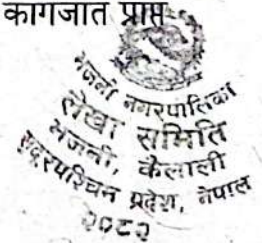 कागजात प्राप्त
भजनी नगरपालिका
लेखा समिति
भजनी, कैलाली
सुदूरपश्चिम प्रदेश, नेपाल
२०८२